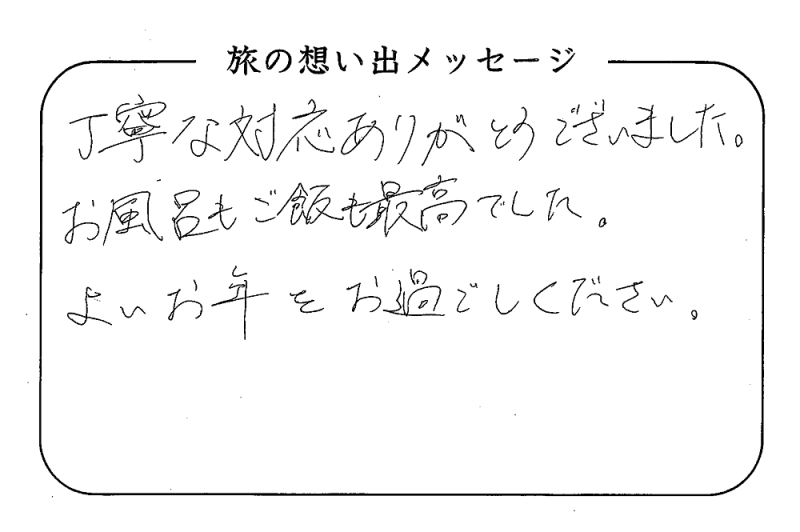 旅の想い出メッセージ
丁寧な対応ありがとうございました。
お風呂もご飯も最高でした。
よいお年をお過ごしください。